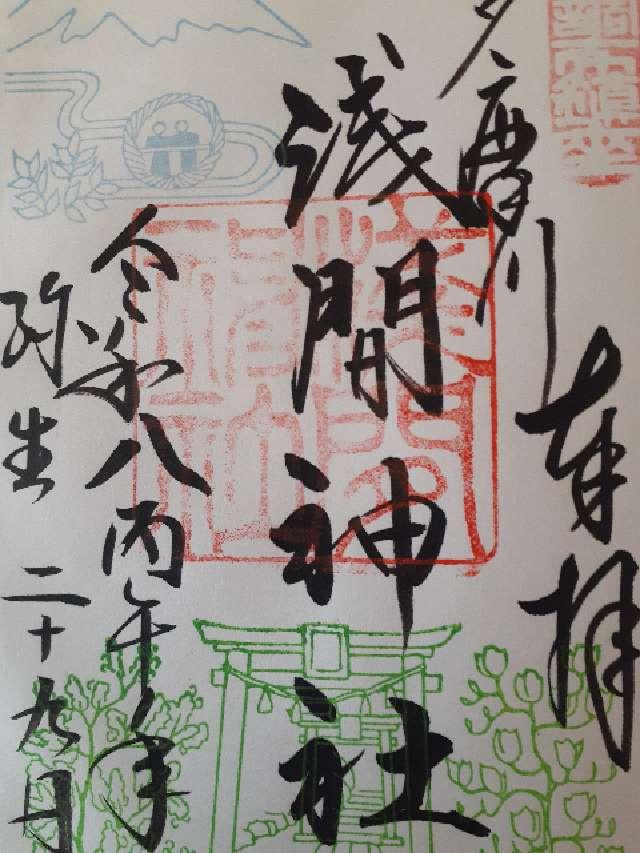 奉拝
多摩川
浅間神社
令和八丙午年
弥生 二十九日